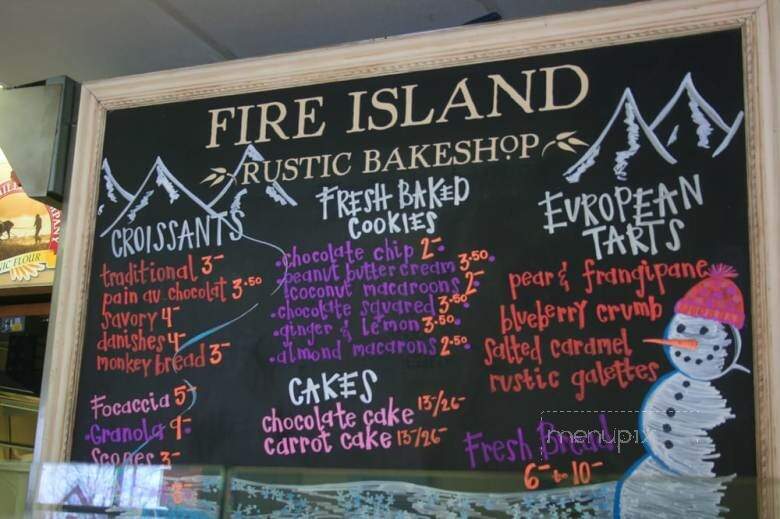 FIRE ISLAND
RUSTIC BAKESHOP
CROISSANTS
traditional 3-
pain au chocolat 3.50
savory 4-
danishes 4-
monkey bread 3-
Focaccia 5-
Granola 9-
Scones 3-
FRESH BAKED
COOKIES
chocolate chip 2-
peanut butter cream 3.50
coconut macaroons 2-
chocolate squared 3.50
ginger & lemon 3.50
almond macarons 2.50
CAKES
chocolate cake 13/26-
carrot cake 13/26-
EUROPEAN
TARTS
pear & frangipane
blueberry crumb
salted caramel
rustic galettes
Fresh Bread
6- to 10-
menupix
COMPANY
NIC FLOUR